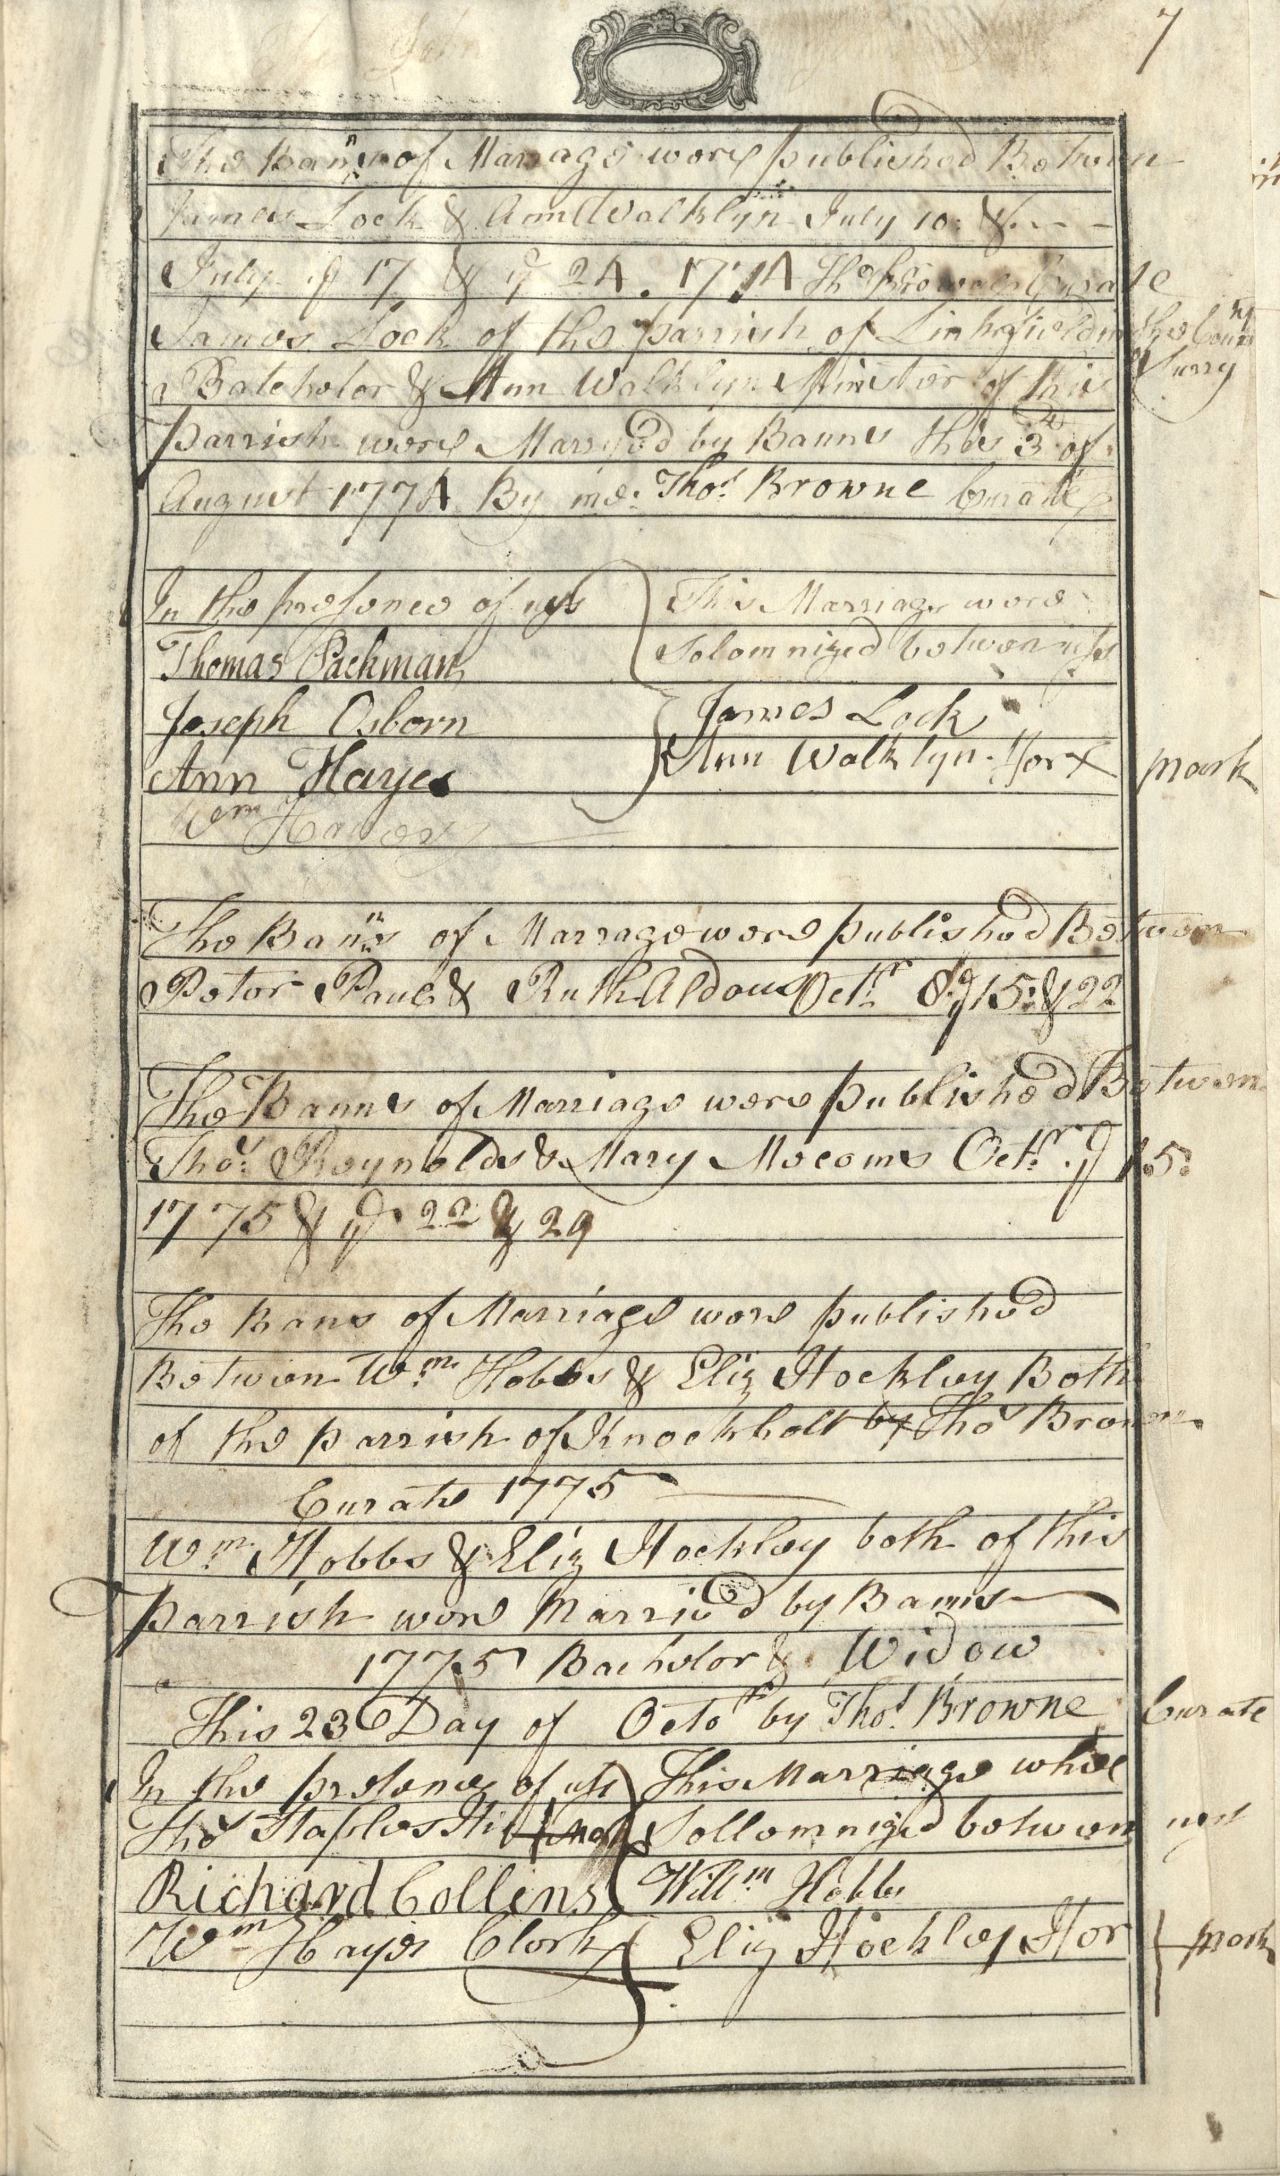 7
The Banns of Marrage were published Betwen
James Lock & Ann Walklyn July 10: &
July ye 17 & ye 24. 1774 Tho Browne Curate
James Lock of the parrish of Linhgfield in the Counnty of Surry
Batchelor & Ann Walklyn Spinster of this
parrish were Marryed by Banns this 3d of
August 1774 By me. Thos. Browne Curate
In the presence of uss
This Marriage were
Thomas Packman
Solomnized betwen uss
Joseph Osborn
James Lock
Ann Hayes
Ann Walklyn Hor X mark
Wm Hayes
The Banns of Marrage were published Betwen
Peter Paul & Ruth Aldous Octr. 8 ye 15: & 22
The Banns of Marriage were published Betwen
Thos. Reynolds & Mary Mecoms Octr. ye 15:
1775 & ye 22 & 29
The Bans of Marriage were published
Betwen Wm. Hobbs & Eliz Hockley Both
of the parrish of Knockholt by Thos Browne
Curate 1775
Wm. Hobbs & Eliz Hockley both of this
parrish were Married by Banns
1775 Bachelor & Widow
This 23 Day of Octor by Thos. Browne Curate
In the presence of uss
This Marriage whee
Thos Staples His mark
Sollomnized betwen uss
Richard Collins
Willm. Hobbs
Wm Hayes Clerk
Eliz Hockley Hor | mark